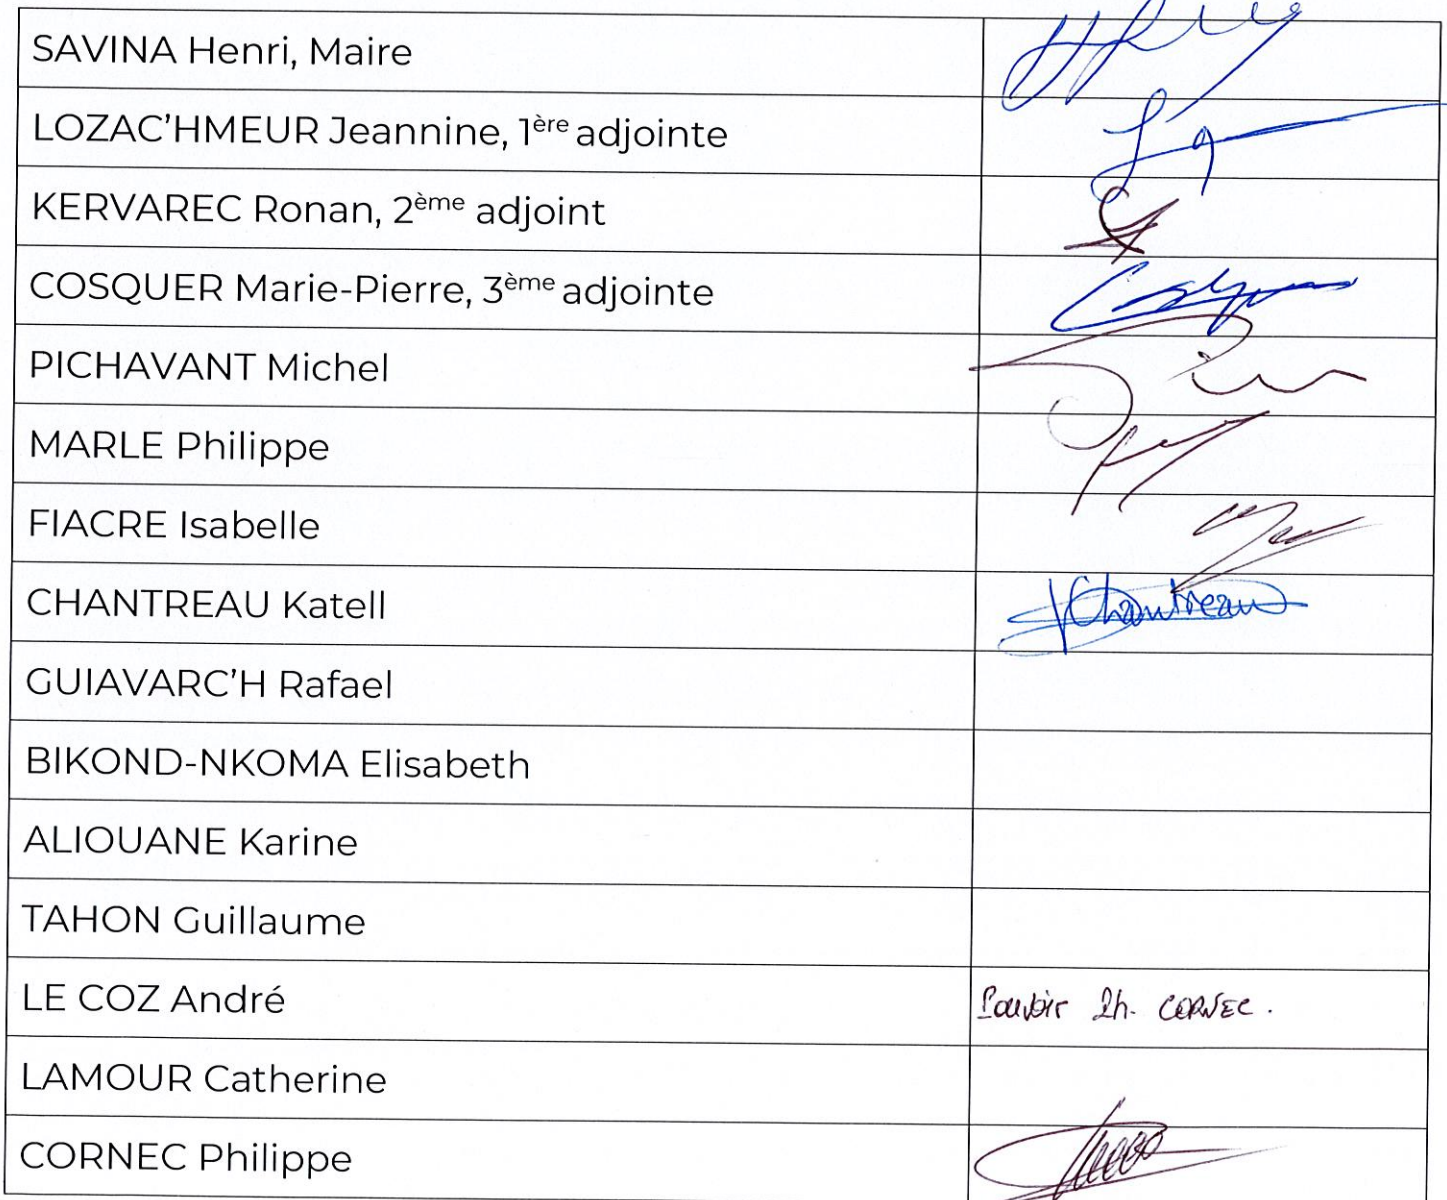 SAVINA Henri, Maire
LOZAC'HMEUR Jeannine, 1ère adjointe
KERVAREC Ronan, 2ème adjoint
COSQUER Marie-Pierre, 3ème adjointe
PICHAVANT Michel
MARLE Philippe
FIACRE Isabelle
CHANTREAU Katell
KChantreau
GUIAVARC'H Rafael
BIKOND-NKOMA Elisabeth
ALIOUANE Karine
TAHON Guillaume
LE COZ André
Pouvoir Ph. CORNEC.
LAMOUR Catherine
CORNEC Philippe